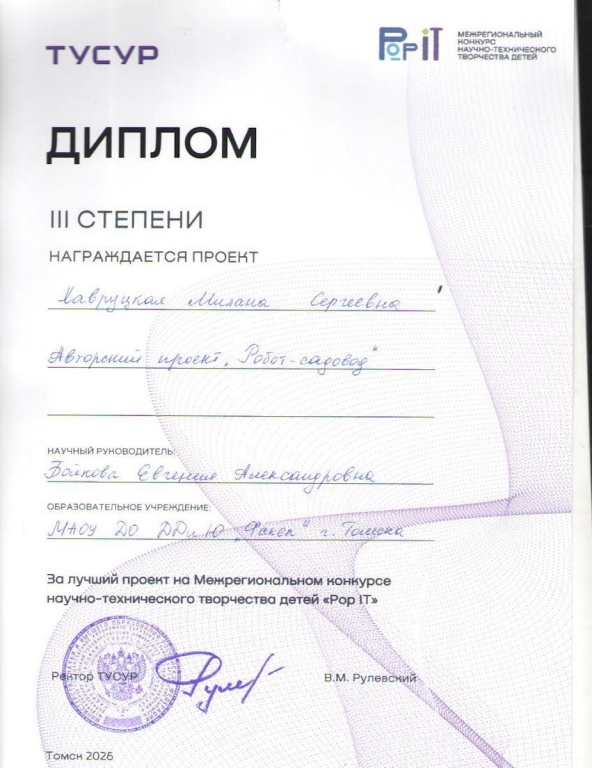 ТУСУР
Pop IT
МЕЖРЕГИОНАЛЬНЫЙ
КОНКУРС
НАУЧНО-ТЕХНИЧЕСКОГО
ТВОРЧЕСТВА ДЕТЕЙ
ДИПЛОМ
III СТЕПЕНИ
НАГРАЖДАЕТСЯ ПРОЕКТ
Милана Сергеевна
Авторский проект „Робот-садовод"
НАУЧНЫЙ РУКОВОДИТЕЛЬ:
Евгения Александровна
ОБРАЗОВАТЕЛЬНОЕ УЧРЕЖДЕНИЕ:
МАОУ ДО ДДиЮ „Факел" г. Томска
За лучший проект на Межрегиональном конкурсе
научно-технического творчества детей «Pop IT»
Ректор ТУСУР
В.М. Рулевский
Томск 2026